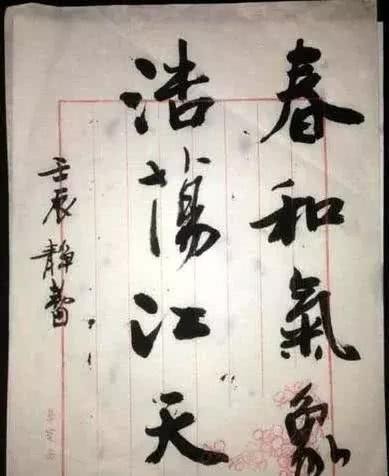 春和氣象
浩蕩江天
壬辰靜蕾